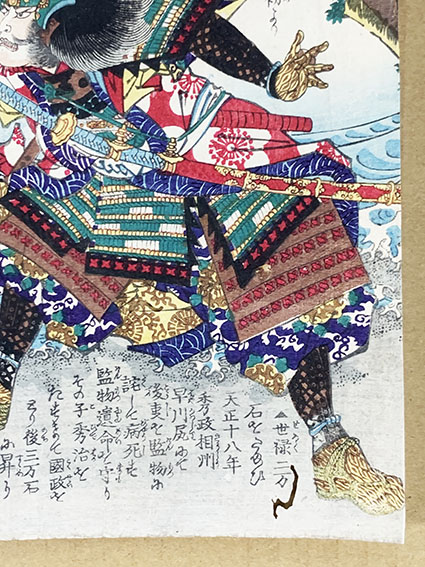 ▲世禄三万
石をたまひ
天正十八年
秀政相州
早川尻にて
後事を監物に
託して病死す
監物遺命を守り
その子秀治を
たすけて國政を
後三万石
に昇り